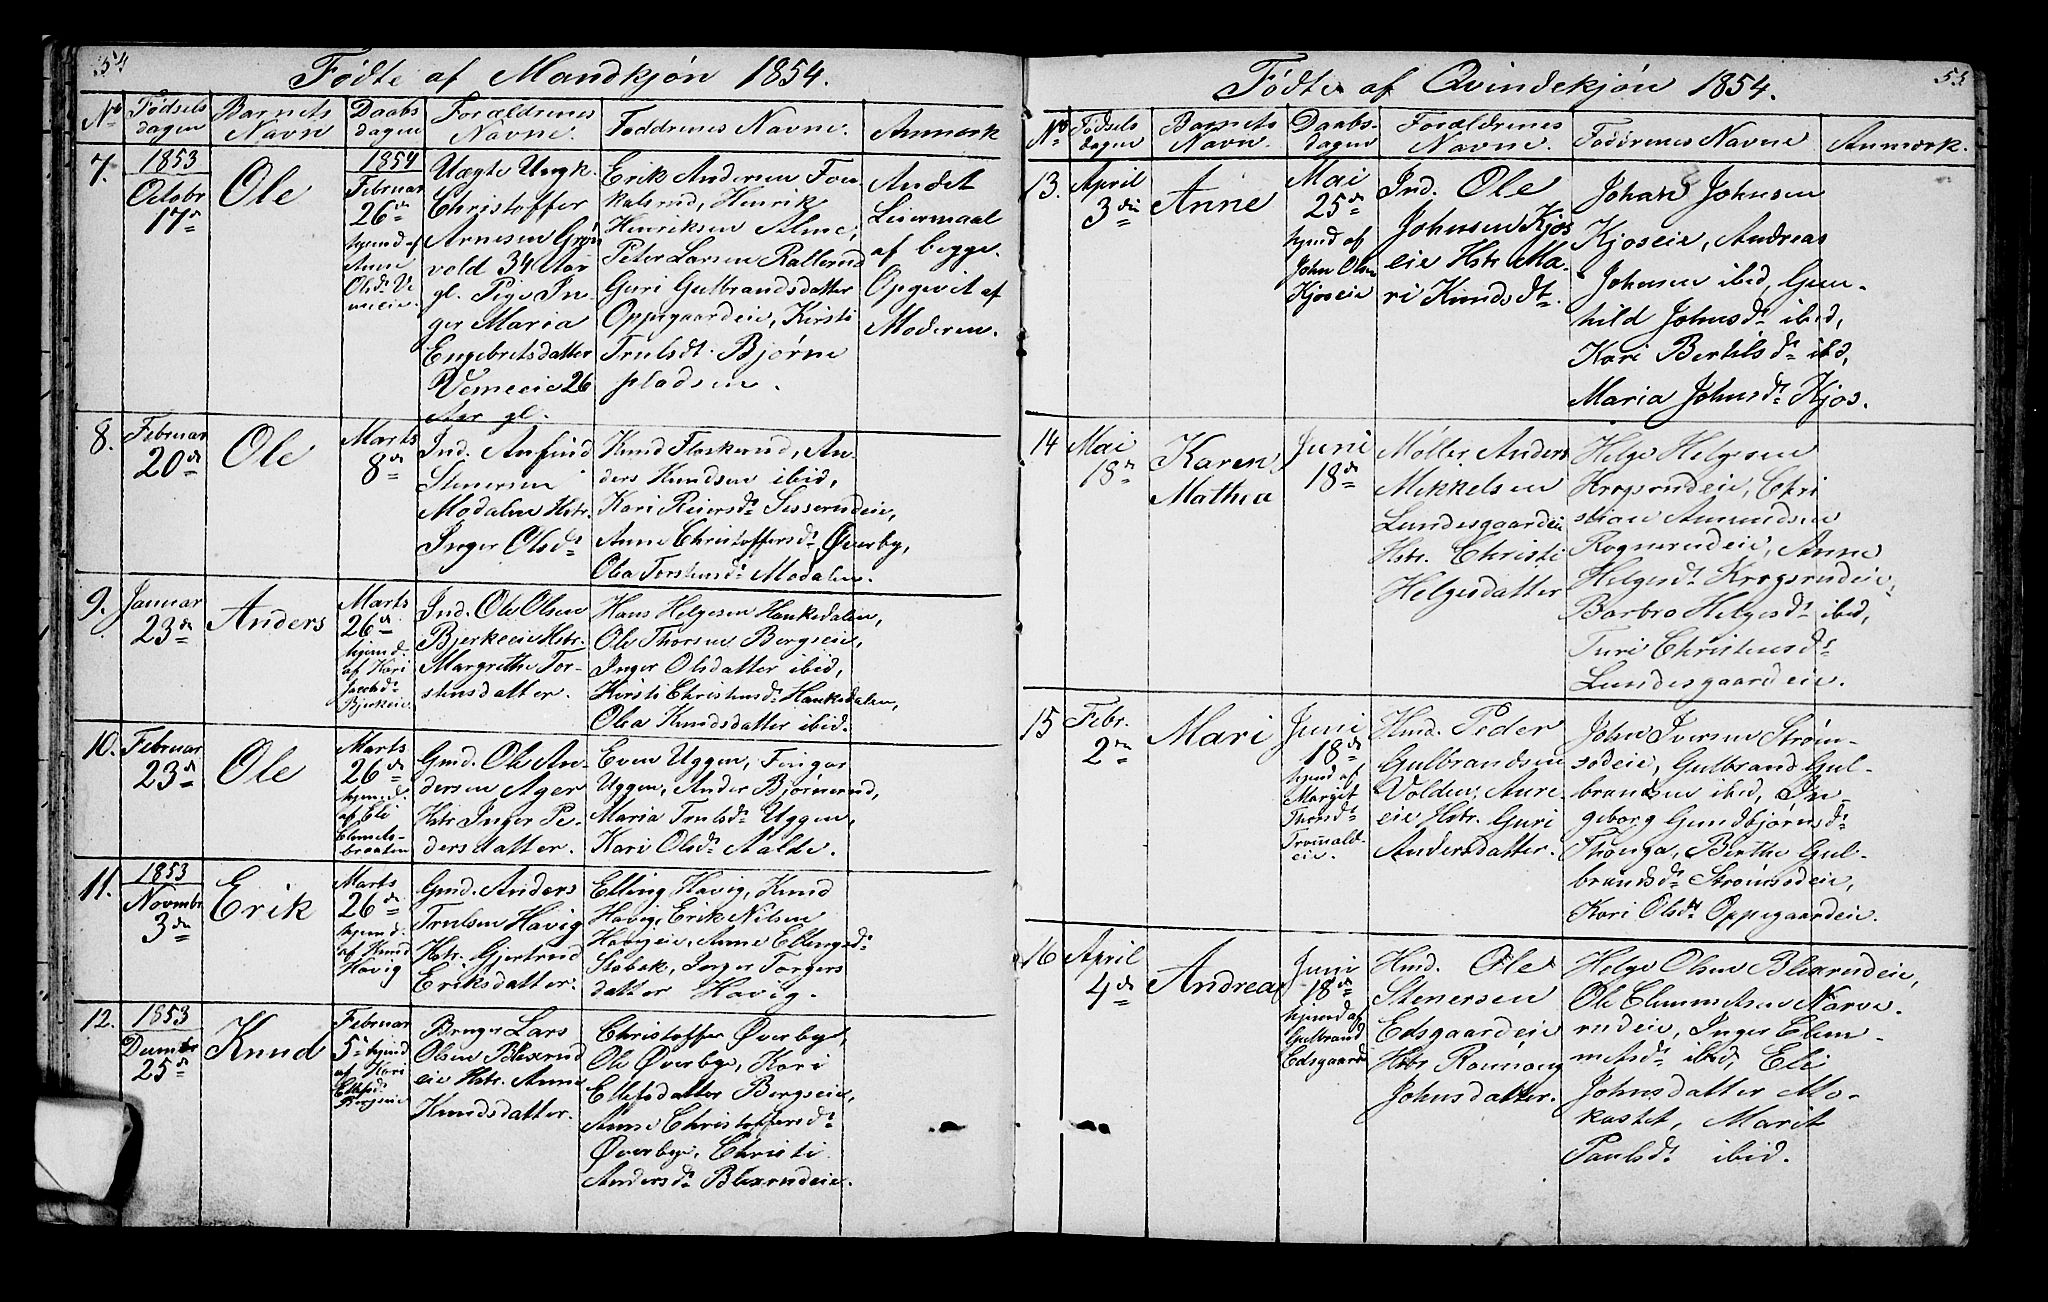 54
Fødte af Mandkjøn 1854.
No
Fødsels
dagen
Barnets
Navn
Daabs
dagen
Forældrenes
Navne.
Faddrenes Navne.
Anmærk
7.
1853
Octobr
17de
Ole
1854
Februar
26de
hjemd af
Anne
Olsdr Ve
meeie.
Uægte Ungk.
Christoffer
Arnesen Grøn
vold 34 Aar
gl. Pige In-
ger Maria
Engebretsdatter
Vemeeie 26
Aar gl.
Erik Andersen Fon
kalsrud, Henrik
Henriksen Alme,
Peter Larsen Rallerud
Guri Gulbrandsdatter
Oppegaardeie, Kirsti
Trulsdt. Bjørne
pladsen.
Andet
Leiermaal
af begge.
Opgivit af
Moderen.
8.
Februar
20de
Ole
Marts
8de
Ind. Anfind
Stenersen
Modalen Hstr.
Inger Olsdr
Knud Floskerud, An-
ders Knudsen ibid,
Kari Reiersdr Sesserudeie,
Anne Christoffersdr Øverby,
Olea Torstensdr Modalen.
9.
Januar
23de
Anders
Marts
26de
hjemd.
af Kari
Jacobsdr
Bjerkeeie
Ind. Ole Olsen
Bjerkeeie Hstr.
Margrethe Tor-
stensdatter.
Hans Helgesen Hankedalen,
Ole Thorsen Bergseie,
Inger Olsdatter ibid,
Kirsti Christensdr Hankedalen,
Olea Knudsdatter ibid.
10.
Februar
23de
Ole
Marts
26de
hjemd.
af Eli
Clemets-
braaten
Gmd. Ole An-
dersen Ager
Hstr Inger Pe-
dersdatter.
Even Uggen, Fingar
Uggen, Ander Bjørnerud,
Maria Trulsdr Uggen,
Kari Olsdr Nalde.
11.
1853
Novmbr
3de
Erik
Marts
26de
hjemd.
af Knud
Havig
Gmd. Anders
Trulsen Havig
Hstr. Gjertrud
Eriksdatter.
Elling Havig, Knud
Havig, Erik Nilsen
Havigeie, Anne Ellingsdr
Stabæk, Inger Torgers
datter Havig.
12.
1853
Decmbr
25de
Knud
Februar
5te hjemd
af Kari
Ellefsdr
Bergseie
Bruger Lars
Olsen Blexrud
eie Hstr. Anne
Knudsdatter.
Christoffer Øverbye,
Ole Øverbye, Kari
Ellefsdatter Bergseie,
Anne Christoffersdr
Øverbye, Christi
Andersdr Blexrudeie.
55
Fødte af Qvindekjøn 1854.
No
Fødsels
dagen
Barnets
Navn.
Daabs-
dagen
Forældrenes
Navne.
Faddrenes Navne
Anmærk.
13.
April
3die
Anne
Mai
25de
hjemd af
John Olsen
Kjoseie
Ind. Ole
Johnsen Kjos
eie Hstr. Ma-
ri Knudsdt.
Johan Johnsen
Kjoseie, Andreas
Johnsen ibid, Gun-
hild Johnsdr ibid,
Kari Bertilsdr ibd,
Maria Johnsdr Kjos.
14
Mai
18de
Karen
Mathea
Juni
18de
Møller Anders
Mikkelsen
Lundesgaardeie
Hstr. Christi
Helgesdatter
Helge Helgesen
Krogsrudeie, Chri
stian Amundsen
Rognerudeie, Anne
Helgesdr Krogsrudeie,
Barbro Helgesdr ibid,
Turi Christensdr
Lundesgaardeie.
15
Febr.
2den
Mari
Juni
18de
hjemd af
Margit
Thorsdr
Tronnald-
eie.
Hmd. Peder
Gulbrandsen
Volden, Aure-
eie Hstr. Guri
Andersdatter.
John Iversen Strøm-
sodeie, Gulbrand Gul-
brandsen ibid, In-
geborg Gundbjørnsdr
Thonga, Berthe Gul-
brandsdr Strømsodeie,
Kari Olsdr Oppegaardeie.
16
April
4de
Andrea
Juni
18de
hjemd af
Gulbrand
Edsgaard
Hmd. Ole
Stenersen
Edsgaardeie
Hstr Rønnoug
Johnsdatter.
Helge Olsen Blexrudeie,
Ole Clemmetsen Narve-
rudeie, Inger Clem-
metsdr ibid, Eli
Johnsdatter Mo-
kastet, Marit
Paulsdr ibid.